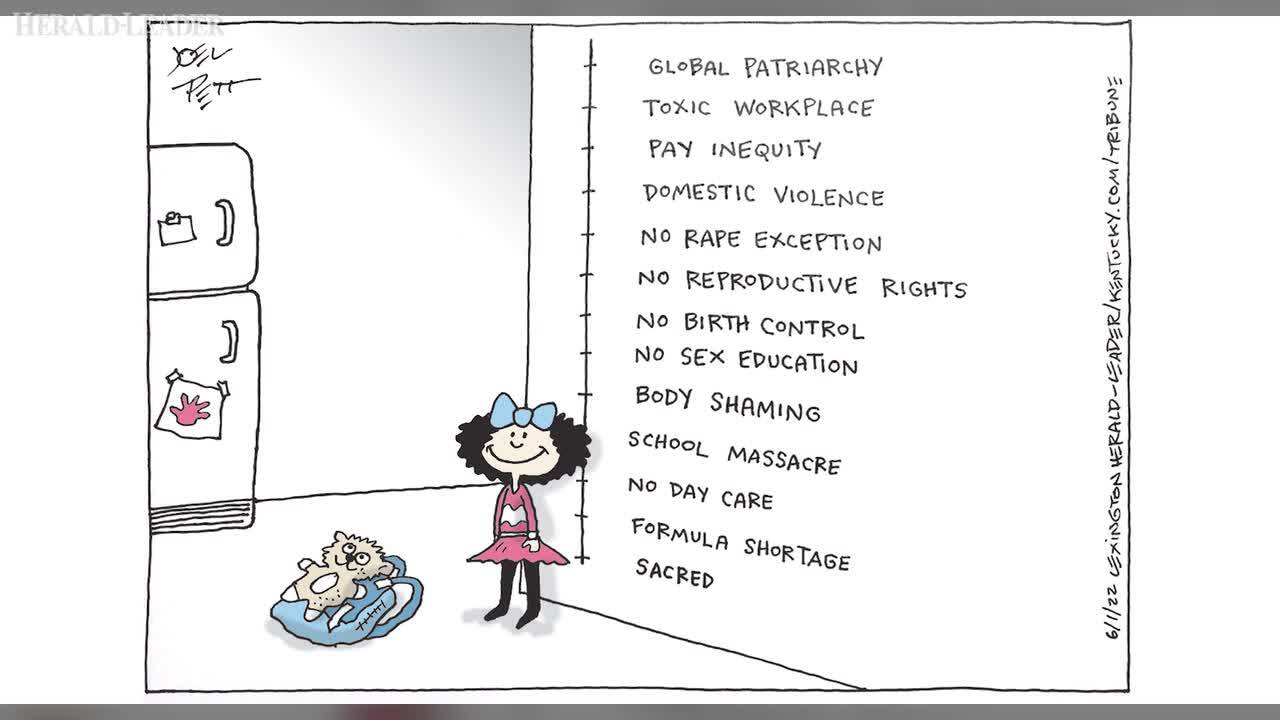 HERALD-LEADER
JOEL
PETT
GLOBAL PATRIARCHY
TOXIC WORKPLACE
PAY INEQUITY
DOMESTIC VIOLENCE
NO RAPE EXCEPTION
NO REPRODUCTIVE RIGHTS
NO BIRTH CONTROL
NO SEX EDUCATION
BODY SHAMING
SCHOOL MASSACRE
NO DAY CARE
FORMULA SHORTAGE
SACRED
6/1/22 LEXINGTON HERALD-LEADER/KENTUCKY.COM/TRIBUNE